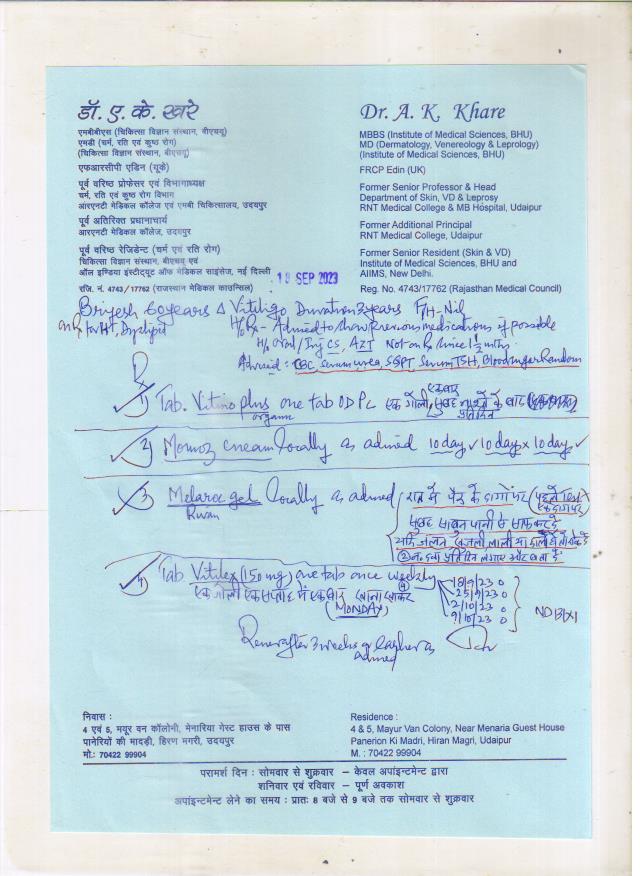 डॉ. ए. के. खरे
एमबीबीएस (चिकित्सा विज्ञान संस्थान, बीएचयू)
एमडी (चर्म, रति एवं कुष्ठ रोग)
(चिकित्सा विज्ञान संस्थान, बीएचयू)
एफआरसीपी एडिन (यूके)
पूर्व वरिष्ठ प्रोफेसर एवं विभागाध्यक्ष
चर्म, रति एवं कुष्ठ रोग विभाग
आरएनटी मेडिकल कॉलेज एवं एमबी चिकित्सालय, उदयपुर
पूर्व अतिरिक्त प्रधानाचार्य
आरएनटी मेडिकल कॉलेज, उदयपुर
पूर्व वरिष्ठ रेजिडेन्ट (चर्म एवं रति रोग)
चिकित्सा विज्ञान संस्थान, बीएचयू एवं
ऑल इण्डिया इंस्टीट्यूट ऑफ मेडिकल साइंसेज, नई दिल्ली
रजि. नं. 4743/17762 (राजस्थान मेडिकल काउन्सिल)
Dr. A. K. Khare
MBBS (Institute of Medical Sciences, BHU)
MD (Dermatology, Venereology & Leprology)
(Institute of Medical Sciences, BHU)
FRCP Edin (UK)
Former Senior Professor & Head
Department of Skin, VD & Leprosy
RNT Medical College & MB Hospital, Udaipur
Former Additional Principal
RNT Medical College, Udaipur
Former Senior Resident (Skin & VD)
Institute of Medical Sciences, BHU and
AIIMS, New Delhi.
Reg. No. 4743/17762 (Rajasthan Medical Council)
SEP 2023
Brijesh 60 years Δ Vitiligo Duration 3 years F/H - Nil
for HT, H/o Rx - Advised to show previous medications if possible
H/o oral/Inj CS, AZT Not on Rx since 1½ mths
Advised: CBC, Serum urea, SGPT, Serum TSH, Blood sugar Random
1) Tab. Vitino plus one tab OD PC एक गोली एक बार सुबह नाश्ते के बाद
प्रतिदिन
2) Momoz cream locally as advised 10 day ✓ 10 day x 10 day ✓
3) Melaroc gel locally as advised
सुबह साबुन पानी से साफ कर दें
4) Tab. Vitilex (150 mg) one tab once weekly
एक गोली एक सप्ताह में एक बार खाना खाकर
(MONDAY)
18/9/23 0
25/9/23 0
2/10/23 0
9/10/23 0
Review after 3 weeks or earlier as
advised
निवास :
4 एवं 5, मयूर वन कॉलोनी, मेनारिया गेस्ट हाउस के पास
पानेरियों की मादड़ी, हिरण मगरी, उदयपुर
मो.: 70422 99904
Residence :
4 & 5, Mayur Van Colony, Near Menaria Guest House
Panerion Ki Madri, Hiran Magri, Udaipur
M. : 70422 99904
परामर्श दिन : सोमवार से शुक्रवार – केवल अपांइन्टमेन्ट द्वारा
शनिवार एवं रविवार – पूर्ण अवकाश
अपांइन्टमेन्ट लेने का समय : प्रातः 8 बजे से 9 बजे तक सोमवार से शुक्रवार